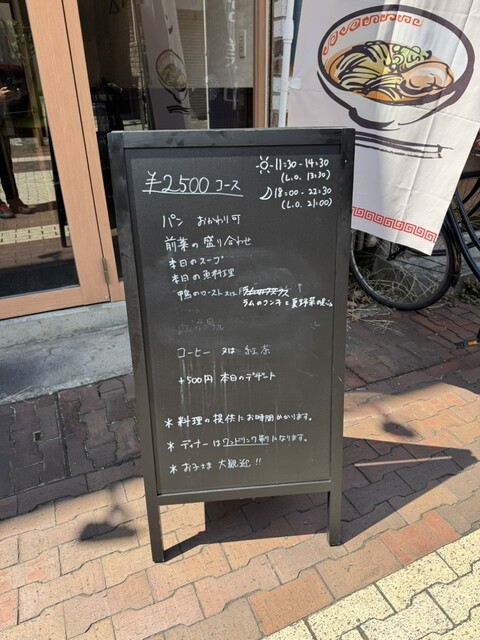 ¥2,500 コース
☀-11:30-14:30
(L.O. 13:30)
☽18:00-22:30
(L.O. 21:00)
パン おかわり可
前菜の盛り合わせ
本日のスープ
本日の魚料理
鴨のロースト又は
ラムのランチと夏野菜の
コーヒー 又は 紅茶
+500円 本日のデザート
* 料理の提供にお時間かかります。
* ディナーはワンドリンク制になります。
* お子さま 大歓迎!!